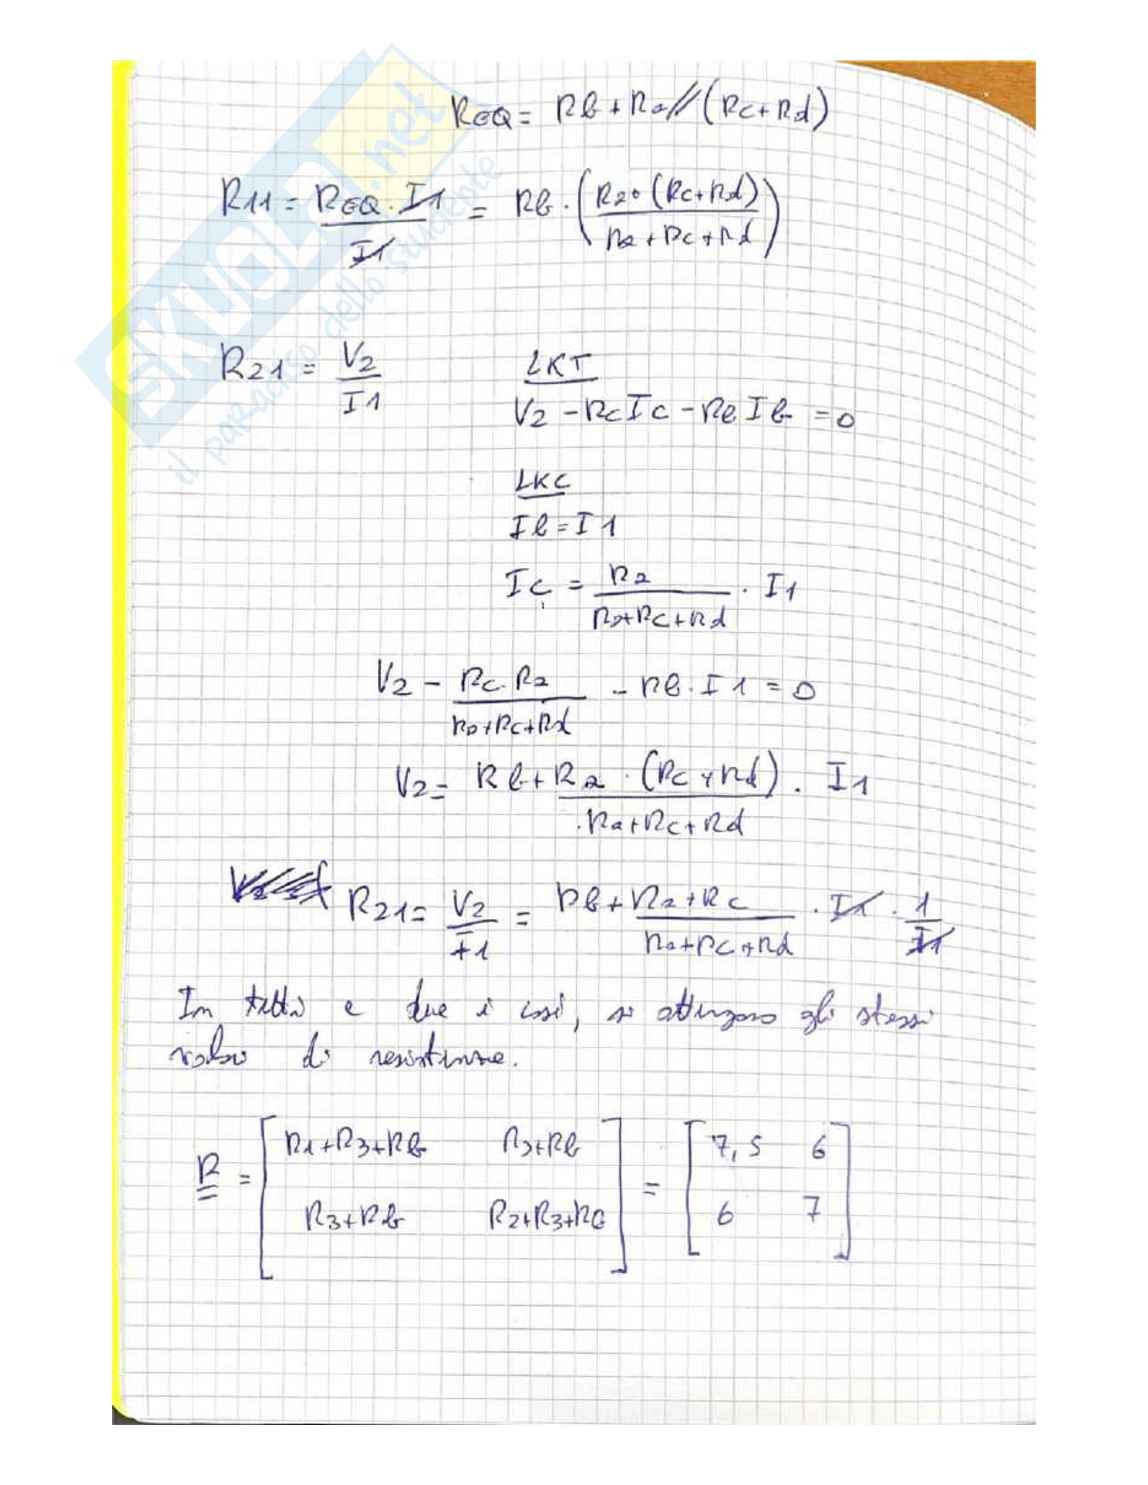 SKUOLA.net
il paradiso dello studente
REQ = Rb + Ra // (Rc + Rd)
R11 = REQ · I1 / I1 = Rb · (Ra · (Rc + Rd) / Ra + Rc + Rd)
R21 = V2 / I1
LKT
V2 - Rc Ic - Rb Ib = 0
LKC
Ib = I1
Ic = Ra / Ra + Rc + Rd · I1
V2 - Rc · Ra / Ra + Rc + Rd - Rb · I1 = 0
V2 = Rb + Ra · (Rc + Rd) / Ra + Rc + Rd · I1
R21 = V2 / I1 = Rb + Ra + Rc / Ra + Rc + Rd · I1 · 1 / I1
In tutti e due i casi, si ottengono gli stessi
valori di resistenze.
R = [ R1 + R3 + Rb R3 + Rb ] = [ 7,5 6 ]
[ R3 + Rb R2 + R3 + R6 ] [ 6 7 ]